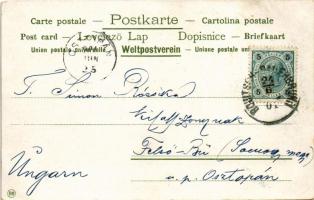 Carte postale - Postkarte - Cartolina postale
Post card - Levelező Lap Dopisnice - Briefkaart
Union postale universelle Weltpostverein Unione postale universale
T. Simon Rózsika
Felső-Bü (Somogy megy)
u. p. Osztopán
Ungarn